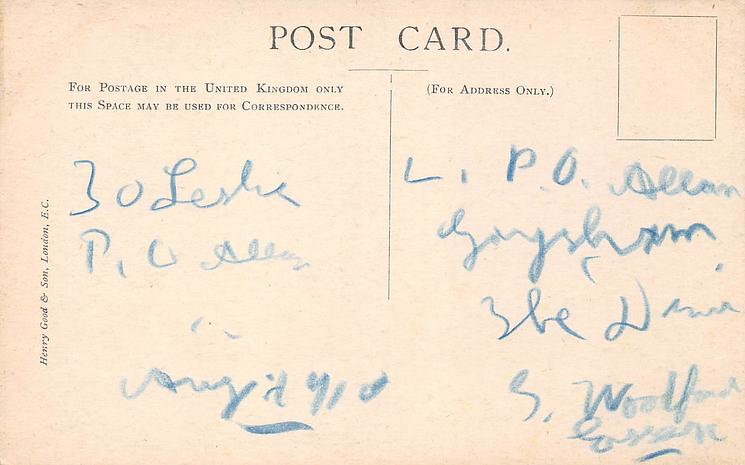 POST CARD.
FOR POSTAGE IN THE UNITED KINGDOM ONLY
THIS SPACE MAY BE USED FOR CORRESPONDENCE.
(FOR ADDRESS ONLY.)
Henry Good & Son, London, E.C.
Leslie
P. O Allan
L. P. O. Allan
The
S. Woodford
Essex